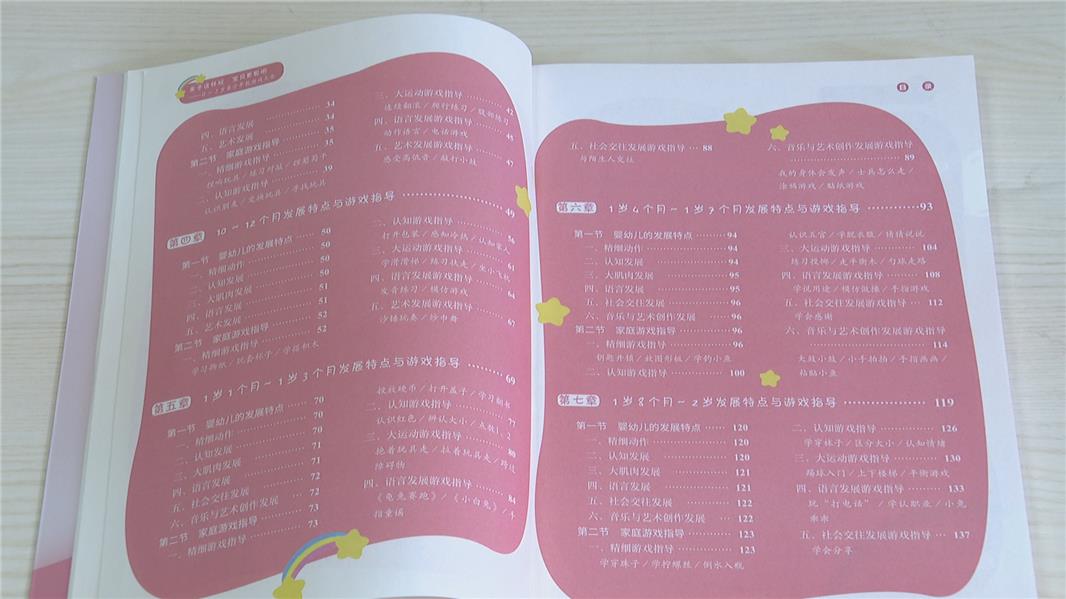 亲子这样玩,宝贝更聪明
四、语言发展 ………… 34
五、艺术发展 ………… 34
第二节 家庭游戏指导 ………… 35
一、精细游戏指导 ………… 35
二、认知游戏指导 ………… 39
认识朋友/交换玩具/寻找玩具
三、大运动游戏指导 ………… 42
连续翻滚/爬行练习/腹部练习
四、语言发展游戏指导 ………… 45
动作语言/电话游戏
五、艺术发展游戏指导 ………… 47
感受高低音/敲打小鼓
第四章 10~12个月发展特点与游戏指导 ………… 49
第一节 婴幼儿的发展特点 ………… 50
一、精细动作 ………… 50
二、认知发展 ………… 50
三、大肌肉发展 ………… 51
四、语言发展 ………… 51
五、艺术发展 ………… 52
第二节 家庭游戏指导 ………… 52
一、精细游戏指导
学习撕纸/玩套杯子/学搭积木
二、认知游戏指导 ………… 56
打开包装/感知冷热/认知家人
三、大运动游戏指导 ………… 61
学滑滑梯/练习扶走/坐小飞机
四、语言发展游戏指导 ………… 64
发音练习/模仿游戏
五、艺术发展游戏指导 ………… 67
沙锤玩奏/纱巾舞
第五章 1岁1个月~1岁3个月发展特点与游戏指导 ………… 69
第一节 婴幼儿的发展特点 ………… 70
一、精细动作 ………… 70
二、认知发展 ………… 71
三、大肌肉发展 ………… 71
四、语言发展 ………… 72
五、社会交往发展 … 72
六、音乐与艺术创作发展 ………… 73
第二节 家庭游戏指导 ………… 73
一、精细游戏指导
投放硬币/打开盖子/学习翻书
二、认知游戏指导 ………… 77
认识红色/辨认大小/点数1、2
三、大运动游戏指导 ………… 80
抱着玩具走/拉着玩具走/跨过
障碍物
四、语言发展游戏指导 ………… 84
《龟兔赛跑》/《小白兔》/手
指童谣
目 录
五、社会交往发展游戏指导 … 88
与陌生人交往
六、音乐与艺术创作发展游戏指导
………… 89
我的身体会发声/士兵怎么走/
涂鸦游戏/贴纸游戏
第六章 1岁4个月~1岁7个月发展特点与游戏指导 ………… 93
第一节 婴幼儿的发展特点 ………… 94
一、精细动作 ………… 94
二、认知发展 ………… 94
三、大肌肉发展 ………… 95
四、语言发展 ………… 95
五、社会交往发展 ………… 96
六、音乐与艺术创作发展 ………… 96
第二节 家庭游戏指导 ………… 96
一、精细游戏指导 ………… 96
钥匙开锁/放图形板/学钓小鱼
二、认知游戏指导 ………… 100
认识五官/学脱衣服/猜猜说说
三、大运动游戏指导 ………… 104
练习投掷/走平衡木/匀球走路
四、语言发展游戏指导 ………… 108
学说用途/模仿做操/手指游戏
五、社会交往发展游戏指导 … 112
学会感谢
六、音乐与艺术创作发展游戏指导
………… 114
大鼓小鼓/小手拍拍/手指画画/
粘贴小鱼
第七章 1岁8个月~2岁发展特点与游戏指导 ………… 119
第一节 婴幼儿的发展特点 …… 120
一、精细动作 ………… 120
二、认知发展 ………… 120
三、大肌肉发展 ………… 121
四、语言发展 ………… 121
五、社会交往发展 ………… 122
六、音乐与艺术创作发展 … 122
第二节 家庭游戏指导 ………… 123
一、精细游戏指导 ………… 123
学穿珠子/学拧螺丝/倒水入瓶
二、认知游戏指导 ………… 126
学穿袜子/区分大小/认知情绪
三、大运动游戏指导 ………… 130
踢球入门/上下楼梯/平衡游戏
四、语言发展游戏指导 ………… 133
玩“打电话”/学认职业/小兔
乖乖
五、社会交往发展游戏指导 … 137
学会分享